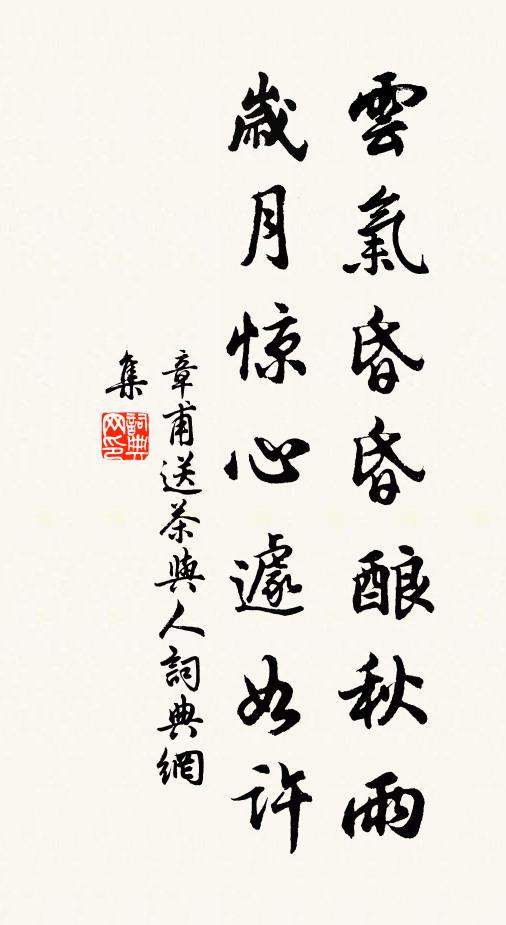 雲氣昏昏酿秋雨
歲月惊心遽如許
章甫送茶與人詞典網
集
詞典
网印